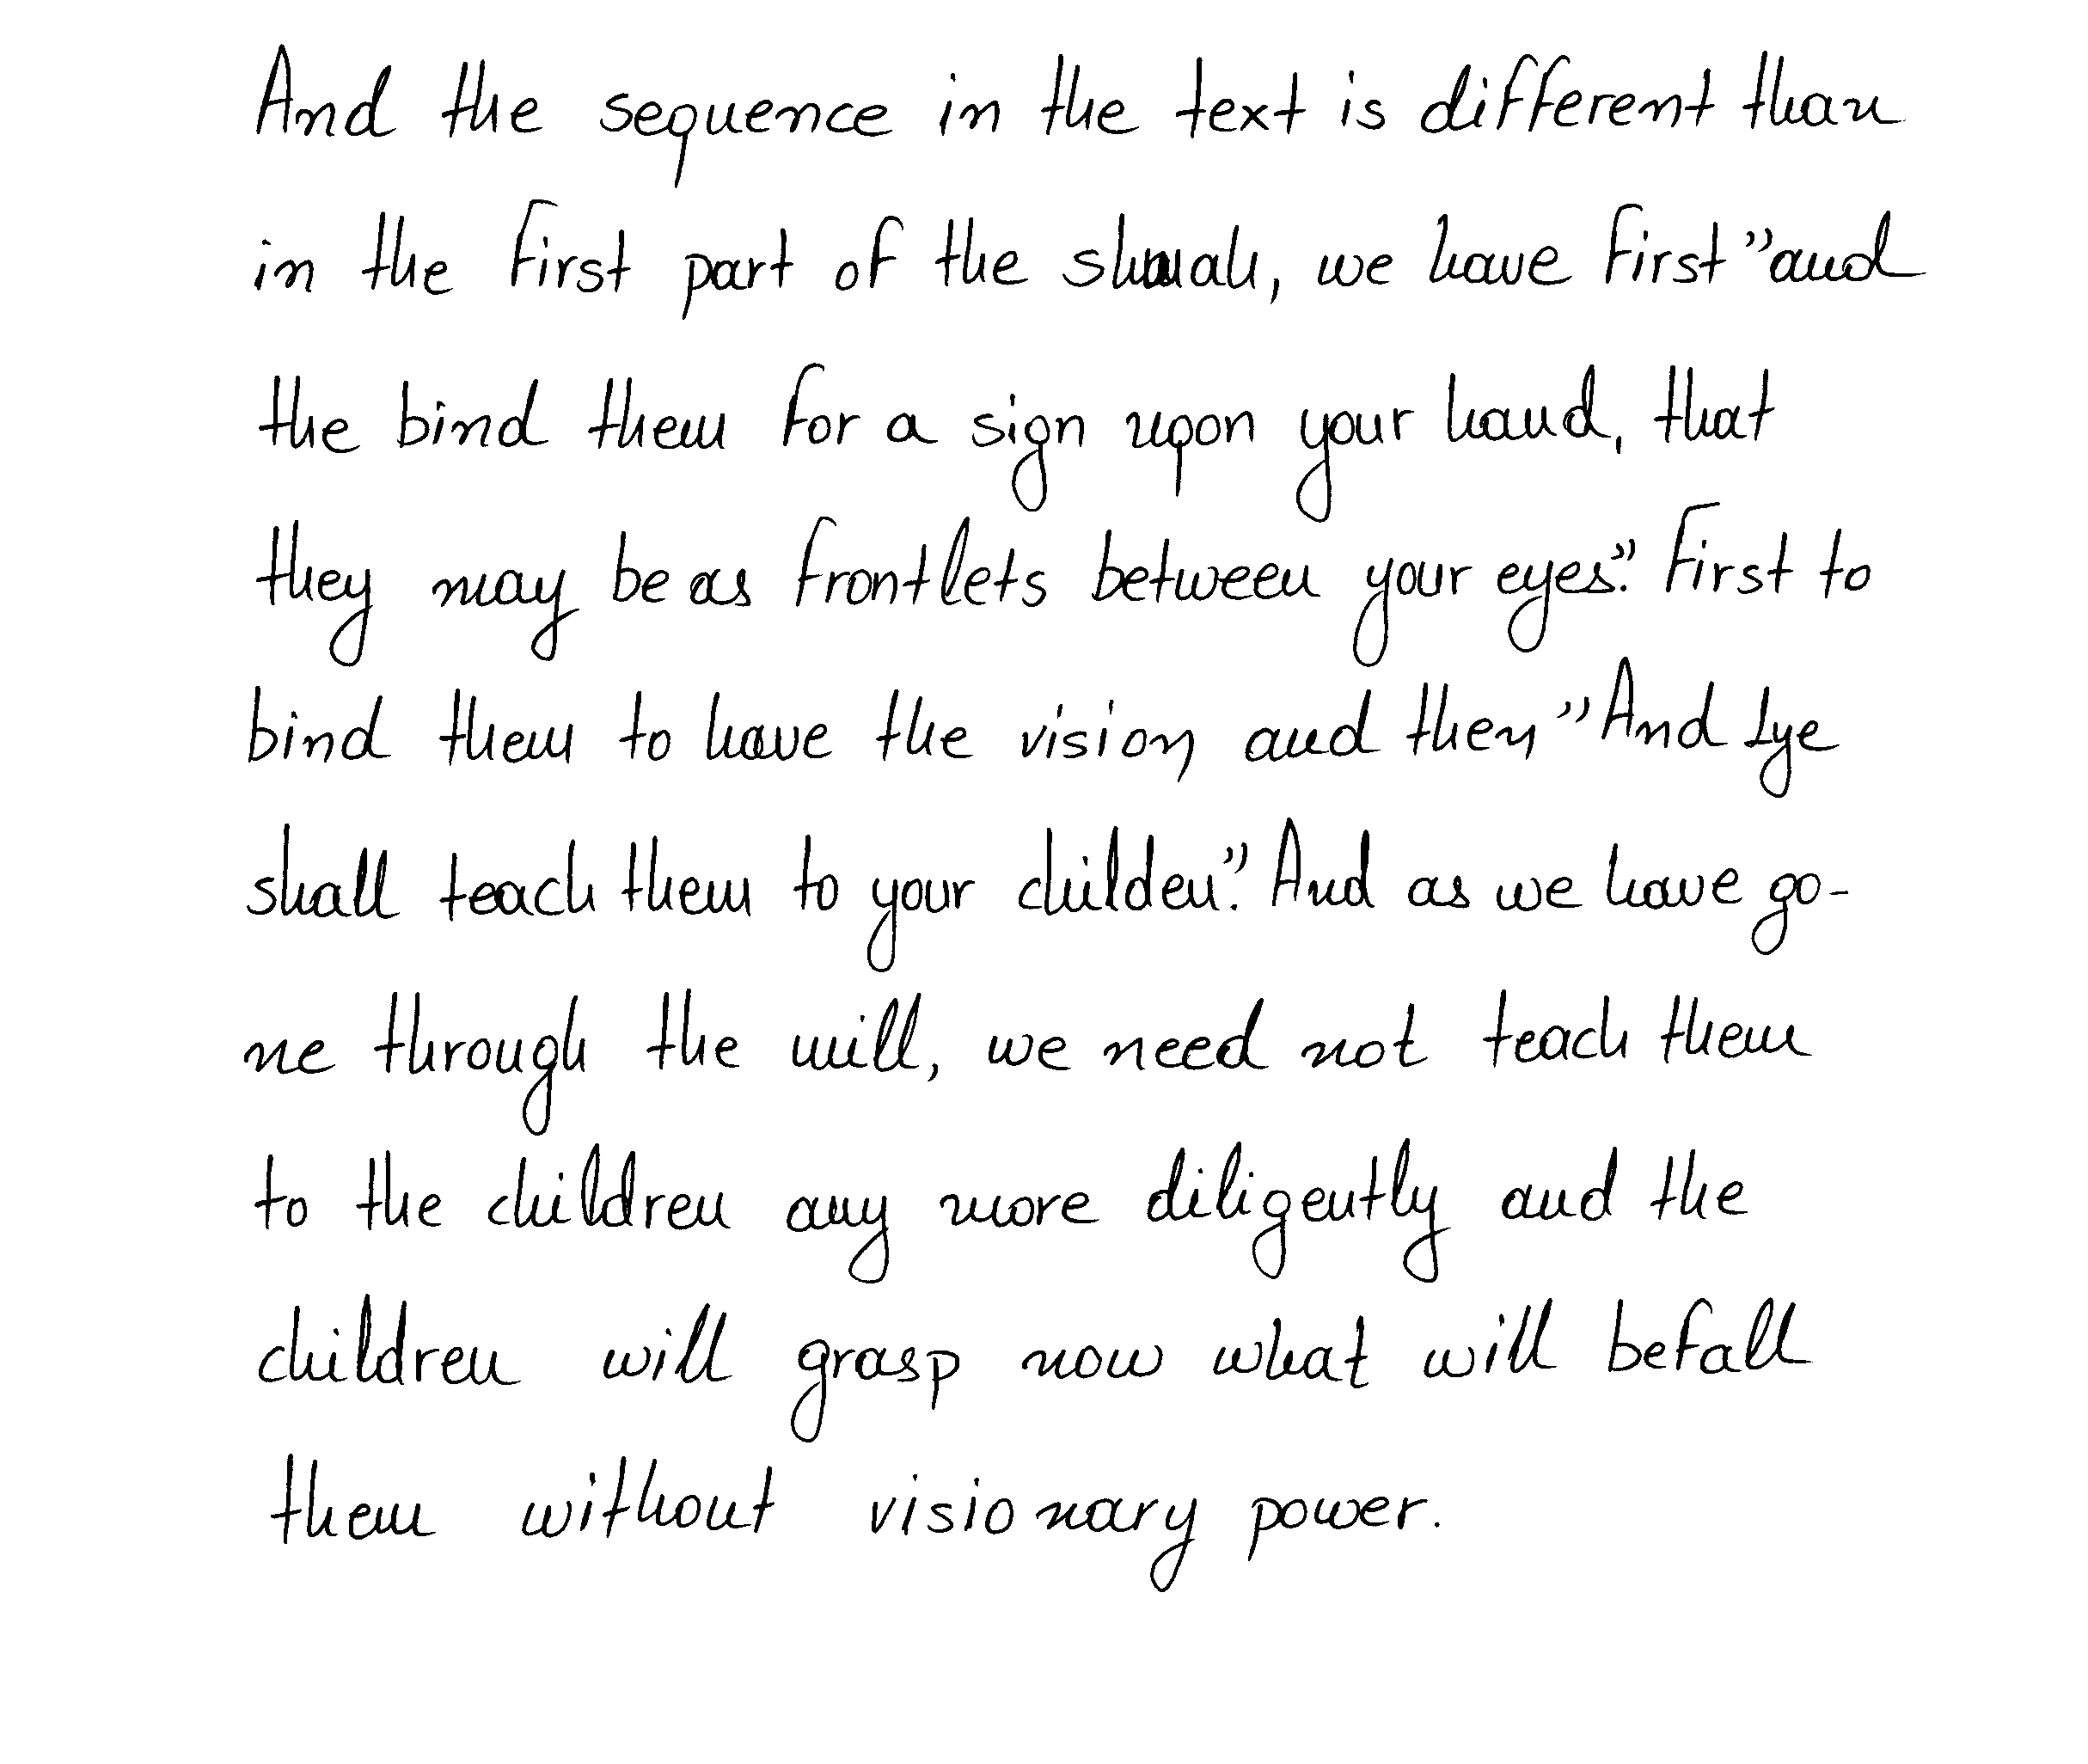 And the sequence in the text is different than
in the first part of the shmah, we have first "and
the bind them for a sign upon your hand, that
they may be as frontlets between your eyes". First to
bind them to have the vision and then "And lye
shall teach them to your childen". And as we have go-
ne through the mill, we need not teach them
to the children any more diligently and the
children will grasp now what will befall
them without visionary power.